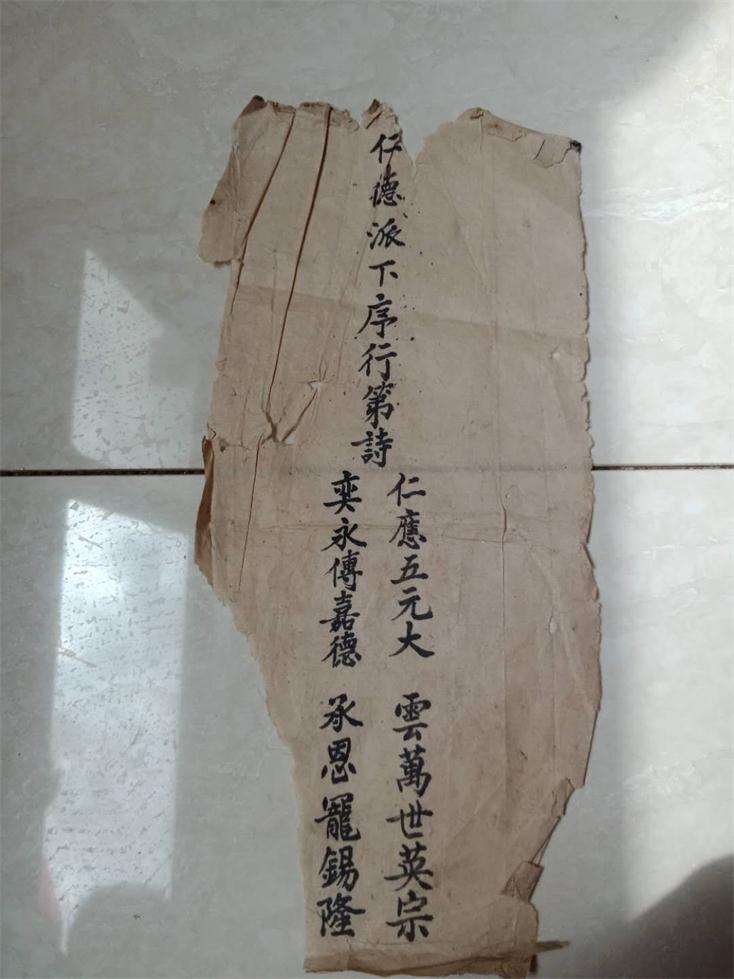 仁德派下序行第詩
仁應五元大 雲萬世英宗
奕永傳嘉德 承恩寵錫隆